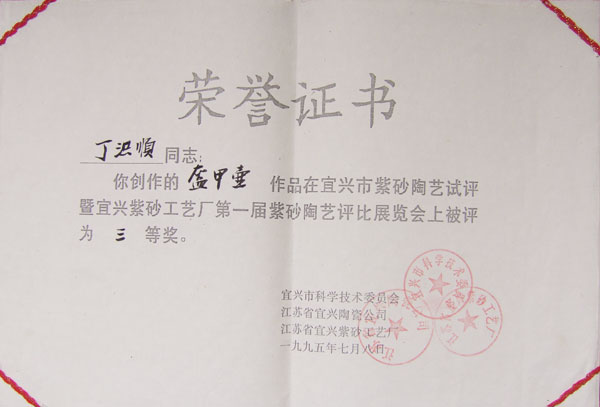 荣誉证书
丁洪顺同志:
你创作的 盔甲壶 作品在宜兴市紫砂陶艺试评
暨宜兴紫砂工艺厂第一届紫砂陶艺评比展览会上被评
为 三 等奖。
宜兴市科学技术委员会
江苏省宜兴陶瓷公司
江苏省宜兴紫砂工艺厂
一九九五年七月八日